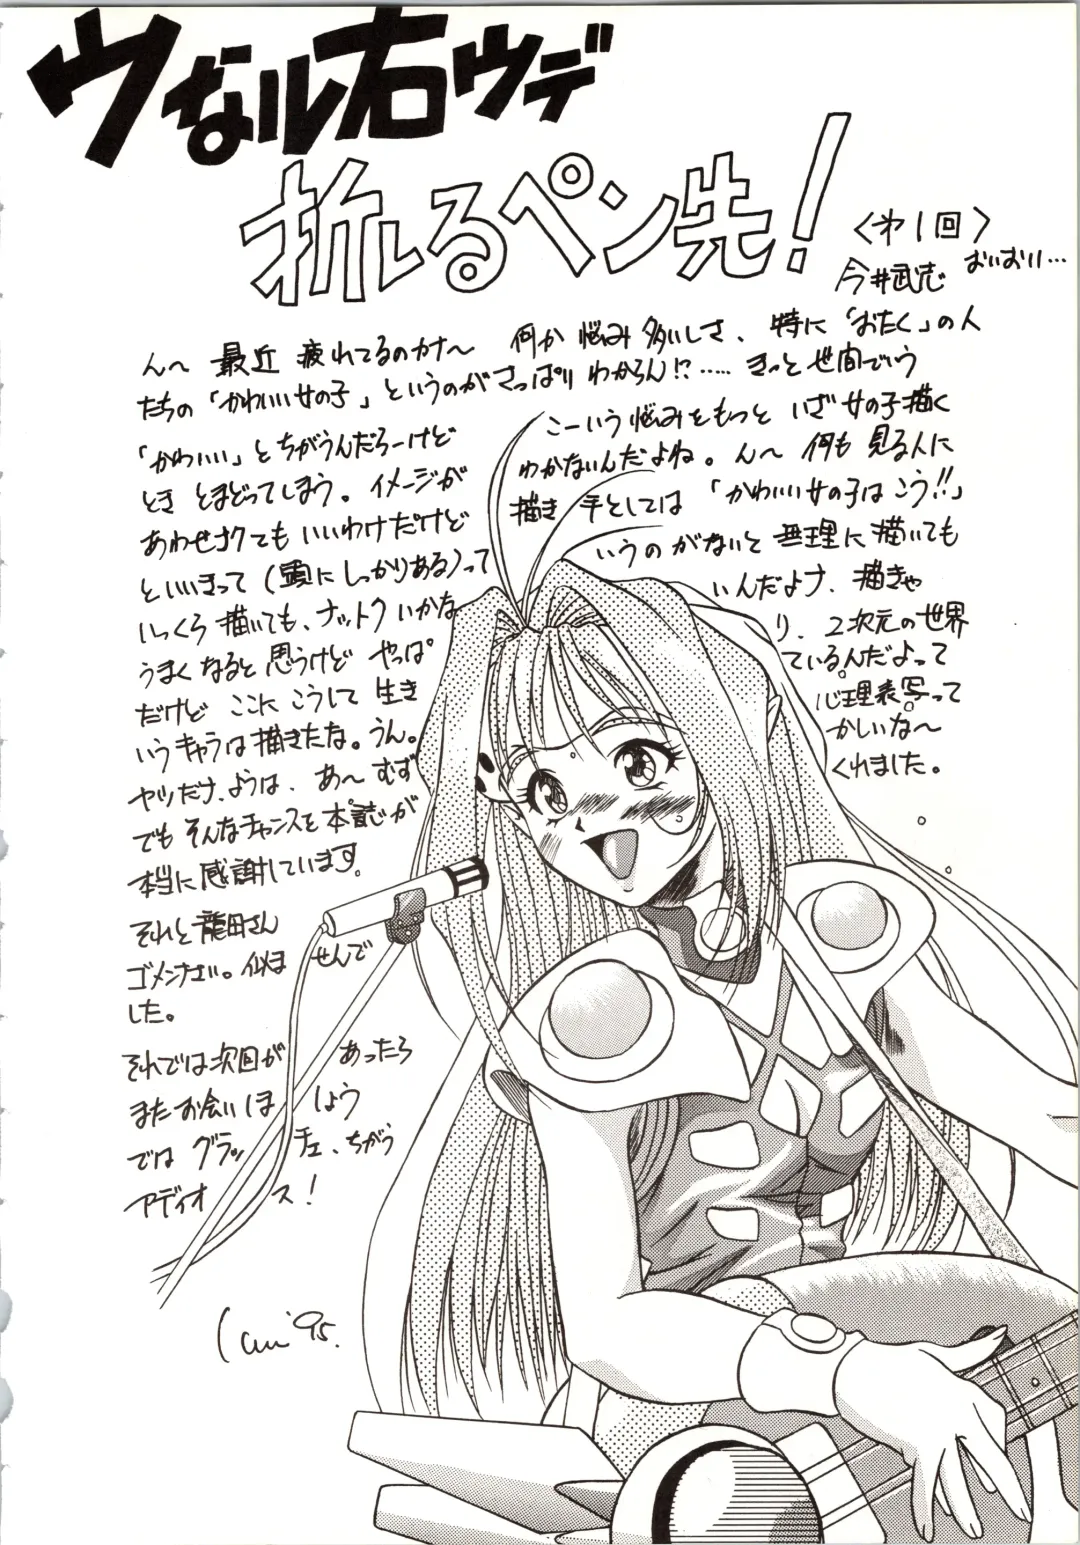 ウなル右ウデ
折しるペン先!
〈才1回〉
おいおい…
今井武志
ん〜 最近 疲れてるのカナ〜 何か悩み多いしさ、特に「おたく」の人
たちの「かわいい女の子」というのがさっぱりわからん!?…… きっと世間でいう
「かわいい」とちがうんだろーけど こーいう悩みをもっと いざ女の子描く
とき とまどってしまう。イメージが わかないんだよね。ん〜 何も見る人に
あわせナクてもいいわけだけど 描き手としては「かわいい女の子はこう!!」
といいきって(頭にしっかりある)って いうのがないと無理に描いても
いっくら描いても、ナットクいかな いんだよナ、描きゃ
うまくなると思うけど やっぱ り、2次元の世界
だけど ここにこうして生き ているんだよって
いうキャラは描きたな。うん。 心理表写って
ヤツだナ、ようは、あ〜むず かしいな〜
でもそんなチャンスを本誌が くれました。
本当に感謝しています。
それと龍田さん
ゴメンナさい。似ま せんで
した。
それでは次回が あったら
またお会いしま しょう
では グラッ チェ、ちがう
アディオ ス!
'95.